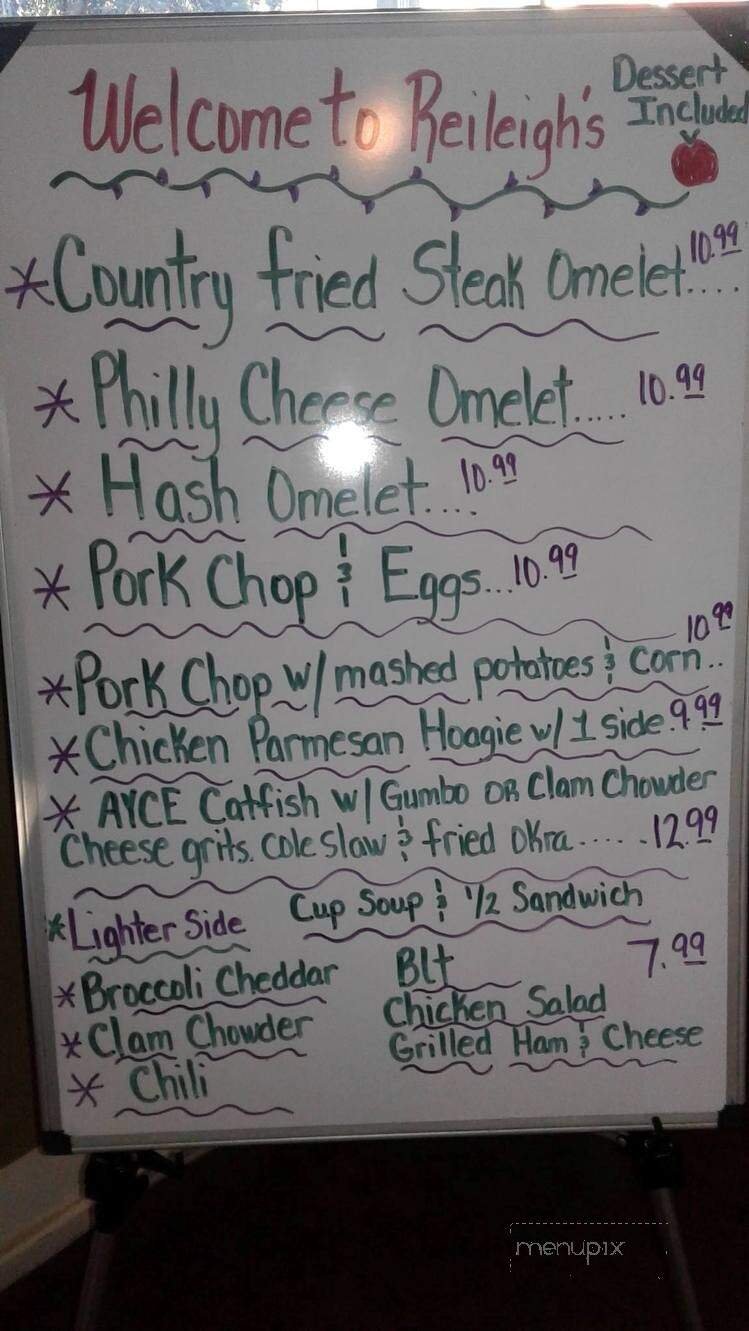 Welcome to Reileigh's
Dessert
Included
*Country fried Steak Omelet.... 10.99
* Philly Cheese Omelet..... 10.99
* Hash Omelet.... 10.99
* Pork Chop & Eggs...10.99
*Pork Chop w/mashed potatoes & corn.. 10.99
*Chicken Parmesan Hoagie w/1 side. 9.99
* AYCE Catfish w/Gumbo OR Clam Chowder
Cheese grits. Cole slaw & fried OKra ......12.99
*Lighter Side Cup Soup & 1/2 Sandwich
7.99
*Broccoli Cheddar Blt
*Clam Chowder Chicken Salad
* Chili Grilled Ham & Cheese
menupix